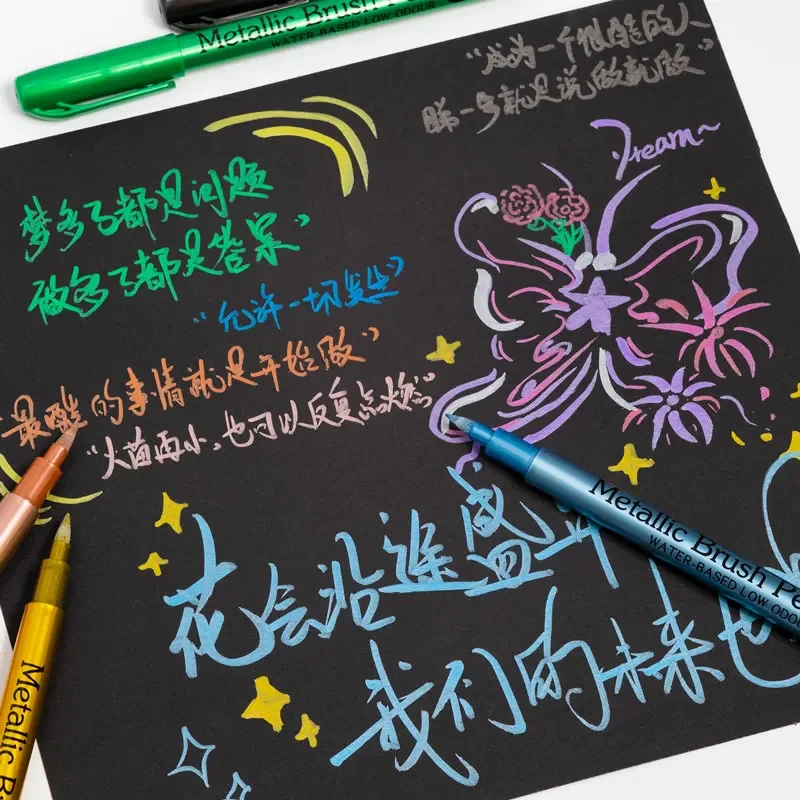 Metallic Brush Pe
WATER-BASED LOW ODOUR
"成为一个很酷的人
第一步就是说做就做"
Dream~
梦多了都是问题
做多了都是答案"
"允许一切发生"
"最酷的事情就是开始做"
"火苗再小,也可以反复点燃"
花会沿途盛开
我们的未来也
Metallic Brush Pe
WATER-BASED LOW ODOUR
Metallic B